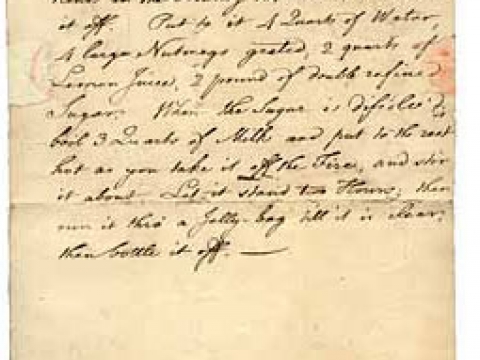 it off. Put to it 4 Quarts of Water,
4 large Nutmegs grated, 2 quarts of
Lemon Juice, 2 pound of double refined
Sugar. When the Sugar is dissolved
boil 3 Quarts of Milk and put to the rest
hot as you take it off the Fire, and stir
it about. Let it stand two Hours; then
run it thro' a Jelly-bag till it is clear;
then bottle it off. —